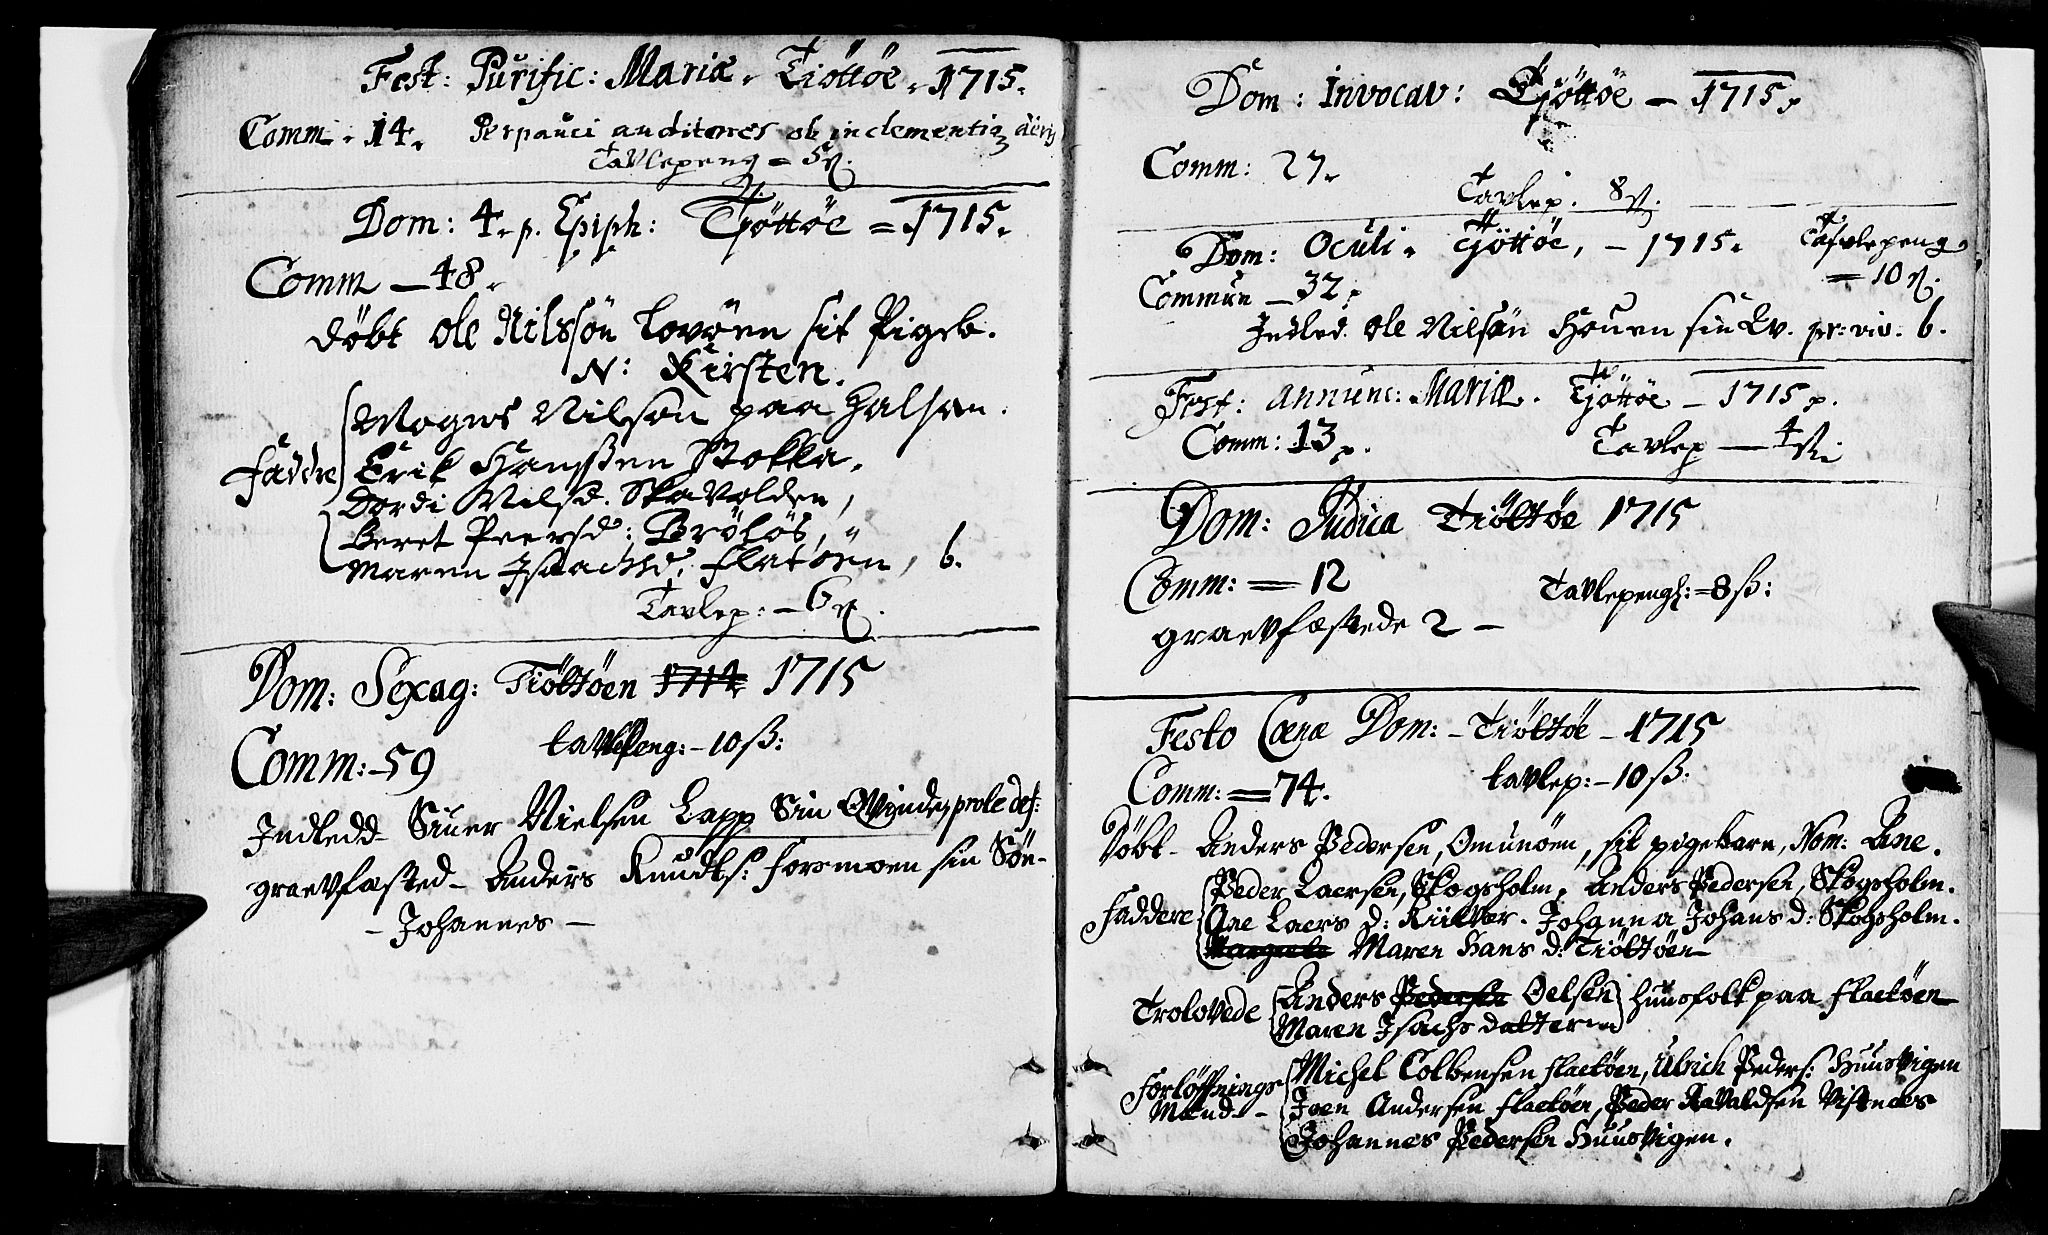 Fest: Purific: Mariæ. Tiöttöe. 1715.
Comm. 14. Perpauci auditores ob inclementia aëris
Tavlepeng = 5
Dom: 4. p. Epiph: Tiöttöe = 1715.
Comm — 48.
döbt Ole Nilssön Lovöen sit Pigeb.
N: Kirsten.
Mogns Nilsøn paa Halsen.
faddre Erik Hansßen Stokka,
Dordi Nilsd. Skavolden,
Beret Peersd: Bröløs,
Maren Isaachsd, flatöen, b.
Tavlep: — 6
Dom: Sexag: Tiöttöen 1714 1715
Comm: 59 tavlepeng: — 10 ß:
Indledd Siuer Nielsen Lapp Sin Qvinde, prole def:
graevfæsted — Anders Knudts: Forsmoen sin Sön
— Johannes —
Dom: Invocav: Tjöttöe — 1715.
Comm: 27.
Tavlep. 8
Dom: Oculi. Tjöttöe, — 1715. Tafvlepeng
Commun — 32. = 10
Indled. Ole Nilsøn Houen sin Qv. pr: viv. b.
Fest: Annunc: Mariæ. Tjöttöe — 1715.
Comm: 13. Tavlep — 4
Dom: Judica Tiöttöe 1715
Comm: = 12 Tavlepengh: = 8 ß:
graevfæstede 2 —
Festo Cænæ Dom: — Tiöttöe — 1715
Comm: = 74. tavlep: — 10 ß:
Döbt — Anders Pedersen, Omunöen, sit pigebarn, Nom: Ane.
Peder Laersen, Skogsholm, Anders Pedersen, Skogsholm.
Faddere Ane Laers d: Riilvær. Johanna Johans d: Skogsholm.
Margrete Maren Hans d: Tiöttöen
Trolovede Anders Pedersen Oelsen huusfolk paa flaetöen
Maren Isachs datter
Michel Colbensen flaetöen, Ulrich Peders: Huusvigen
Forlöffnings Joen Andersen flaetöen, Peder Ravaldsen Vistnæs
Mænd — Johannes Pedersen Huusvigen.